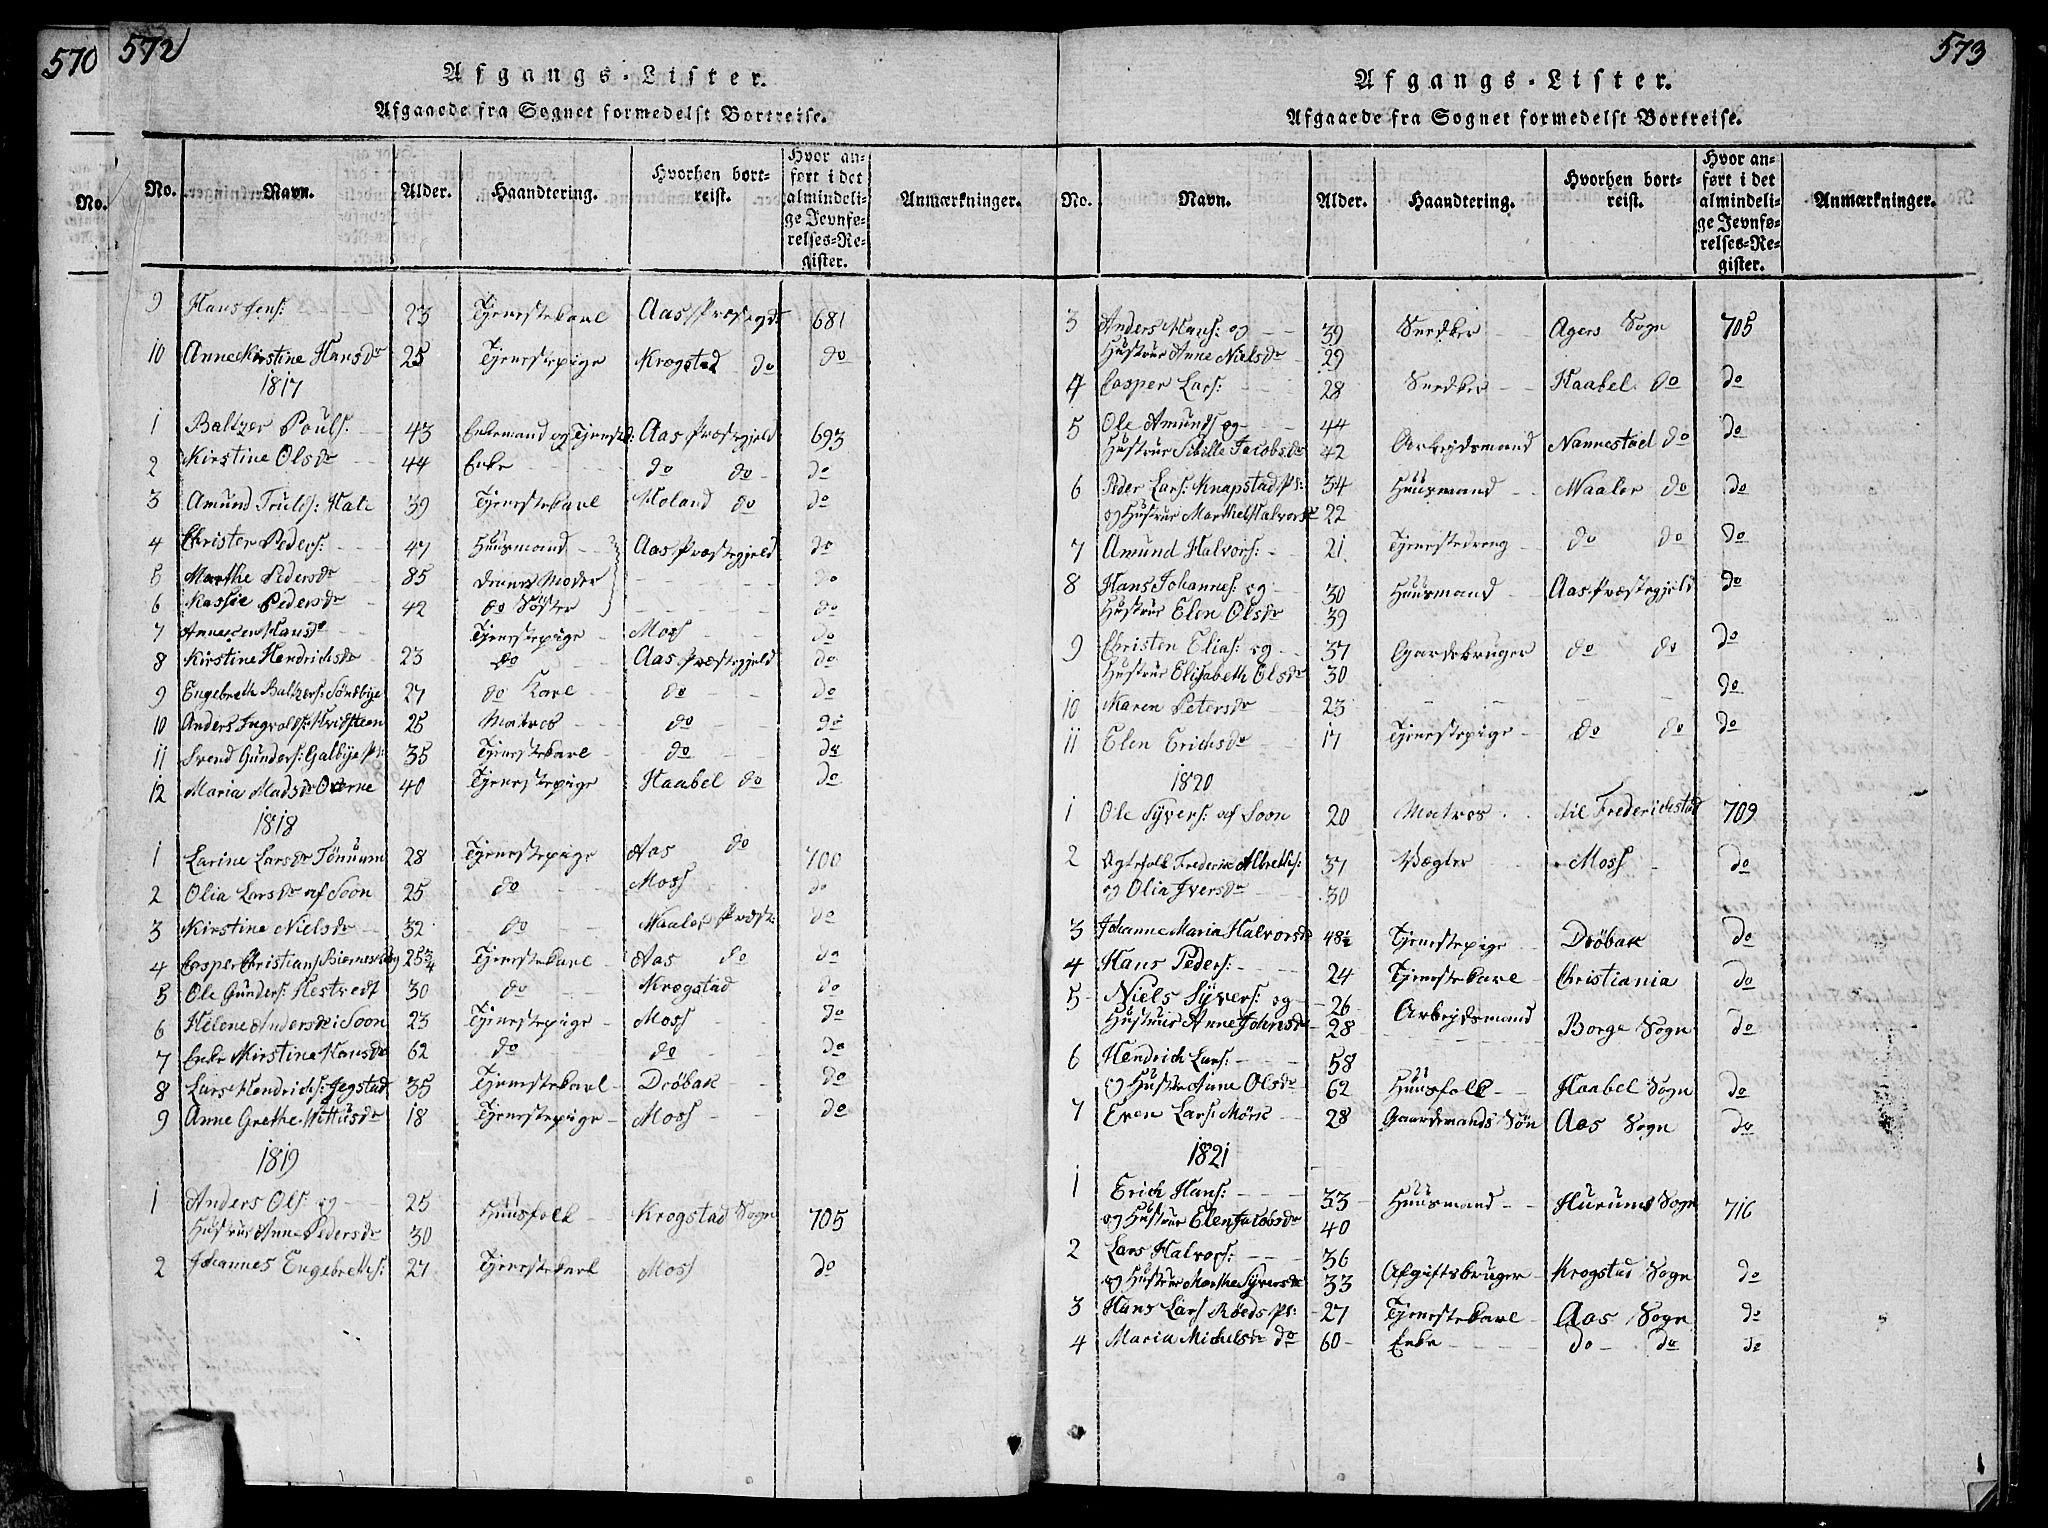 570
No.
572
Afgangs-Lister.
Afgaaede fra Sognet formedelst Bortreise.
No. Navn. Alder. Haandtering. Hvorhen bortreist. Hvor anført i det almindelige Jevnførelses-Register. Anmærkninger.
9 Hans Jens: 23 Tjenestekarl Aas Præstegd: 681
10 Anne Kirstine Hansdr 25 Tjenestepige Krogstad do do
1817
1 Baltzer Pouls: 43 Enkemand og Tjenest: Aas Præstegjeld 693
2 Kirstine Olsdr 44 Enke do do do
3 Amund Truls: 39 Tjenestekarl Moland do do
4 Christer Peders: 47 Huusmand Aas Præstegjeld do
5 Marthe Pedersdr 85 dennes Moder do
6 Kassie Pedersdr 42 do Søster do
7 Hansdr Tjenestepige Moss do
8 Kirstine Hendrichsdr 23 do Aas Præstegjeld do
9 Engebreth Baltzers: Sundbye 27 do Karl do do
10 Anders Ingvolds: Hvidsteen 25 Matros do do
11 Svend Gunders: Galbye Pl: 35 Tjenestekarl do do
12 Maria Madsdr 40 Tjenestepige Haabel do do
1818
1 Larine Larsdr 28 Tjenestepige Aas do 700
2 Olia Larsdr af Soon 25 do Moss do
3 Kirstine Nielsdr 32 do Waaler Præst: do
4 Casper Christians: 25 3/4 Tjenestekarl Aas do do
5 Ole Gunders: Hestvedt 30 do Krogstad do
6 Helene Andersdr i Soon 23 Tjenestepige Moss do
7 Enke Kirstine Hansdr 62 do do do
8 Lars Hendrichs: Jegstad 35 Tjenestekarl Drøbak do
9 Anne Grethe 18 Tjenestepige Moss do
1819
1 Anders Ols: og 25 Huusfolk Krogstad Sogn 705
Hustrue Anne Pedersdr 30
2 Johannes Engebreths: 27 Tjenestekarl Moss do
573
Afgangs-Lister.
Afgaaede fra Sognet formedelst Bortreise.
No. Navn. Alder. Haandtering. Hvorhen bortreist. Hvor anført i det almindelige Jevnførelses-Register. Anmærkninger.
3 Anders Hans: og 39 Snedker Agers Sogn 705
Hustrue Anne Nielsdr 29
4 Casper Lars: 28 Snedker Haabel do do
5 Ole Amunds og 44 Arbejdsmand Nannestad do do
Hustrue Sibille Jacobsdr 42
6 Peder Lars: Knapstad Pl: 34 Huusmand Waaler do do
og Hustrue Marthe Halvorsdr 22
7 Amund Halvors: 21 Tjenestedreng do do do
8 Hans Johannes: og 30 Huusmand Aas Præstegjeld do
Hustrue Elen Olsdr 39
9 Christen Elias: og 37 Gaardbruger do do do
Hustrue Elisabeth Olsdr 30
10 Maren Petersdr 23 do
11 Elen Erichsdr 17 Tjenestepige do do do
1820
1 Ole Syvers: af Soon 20 Matros til Frederichstad 709
2 Ægtefolk Frederik Albreths: 37 Vægter Moss do
og Olia Iversdr 30
3 Johanne Maria Halvorsdr 48½ Tjenestepige Drøbak do
4 Hans Peders: 24 Tjenestekarl Christiania do
5 Niels Syvers: og 26 Arbejdsmand Borge Sogn do
Hustrue Anne Johnsdr 28
6 Hendrich Lars: 58
og Hustr: Anne Olsdr 62 Huusfolk Haabel Sogn do
7 Even Lars: Mørk 28 Gaardmands Søn Aas Sogn do
1821
1 Erich Hans: 33 Huusmand Hurums Sogn 716
og Hustrue Elen Jacobsdr 40
2 Lars Halvors: 36
og Hustrue Marthe Syversdr 33 Afgiftsbruger Krogstad Sogn do
3 Hans Lars Røeds Pl: 27 Tjenestekarl Aas Sogn do
4 Maria Michelsdr do 60 Enke do do do